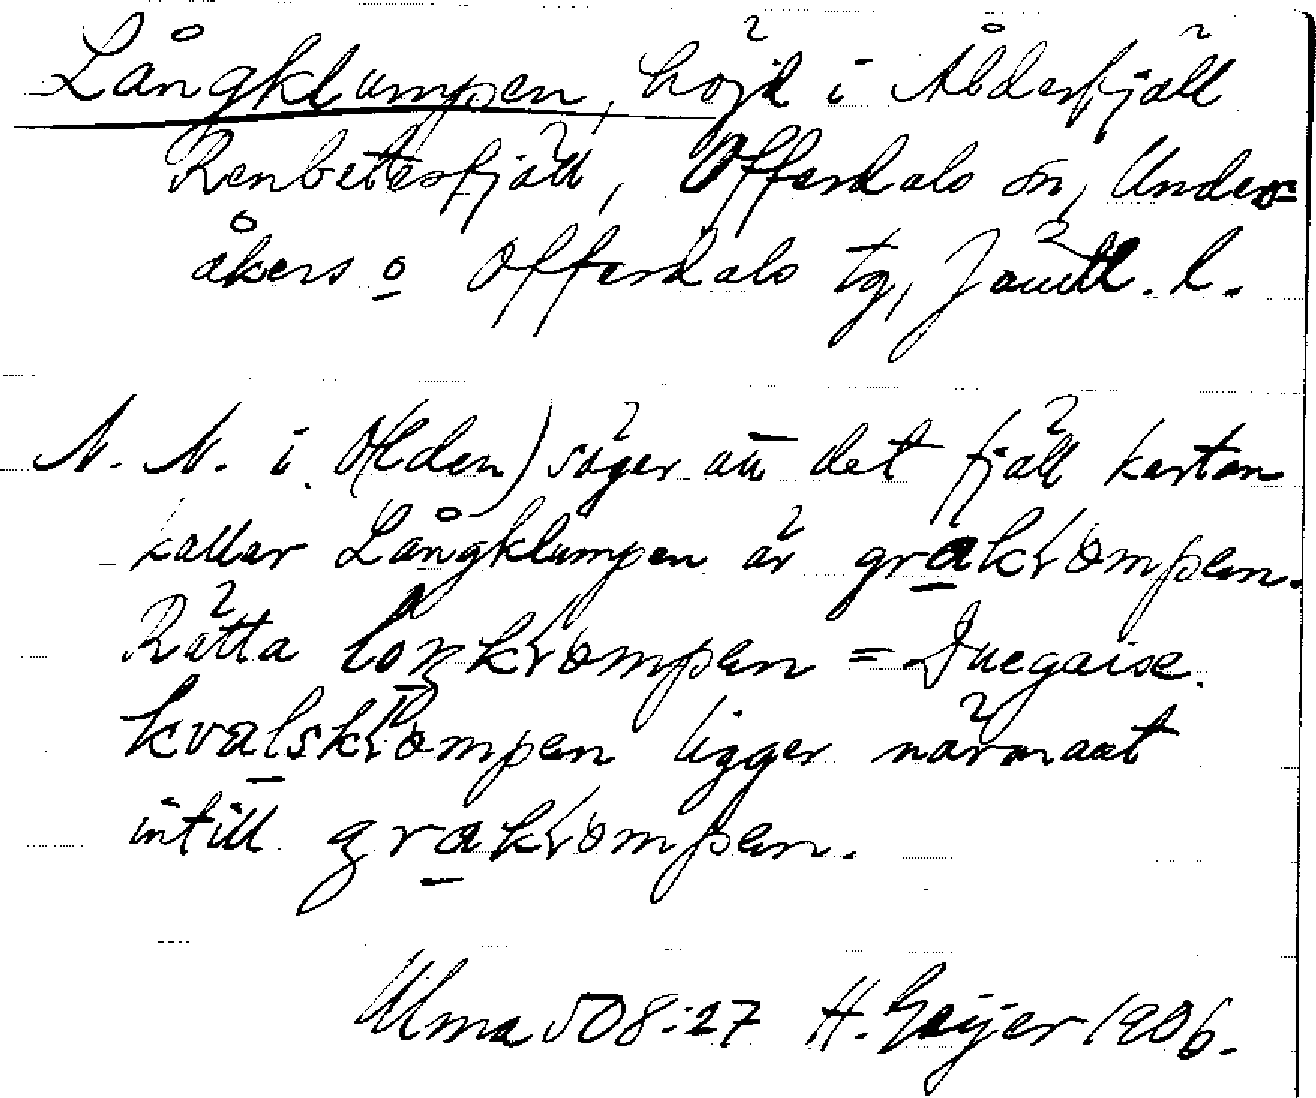 Långklumpen, höjd i Ålderfjäll
Renbetesfjäll, Offerdals sn, Under=
åkers o Offerdals tg, Jämtl. l.
N. N. i Olden) säger att det fjäll kartan
kallar Långklumpen är grakrompen.
Rätta = Duegaise.
kvalskrompen ligger närmast
intill grakrompen.
Ulma 508:27 H. Geijer 1906.